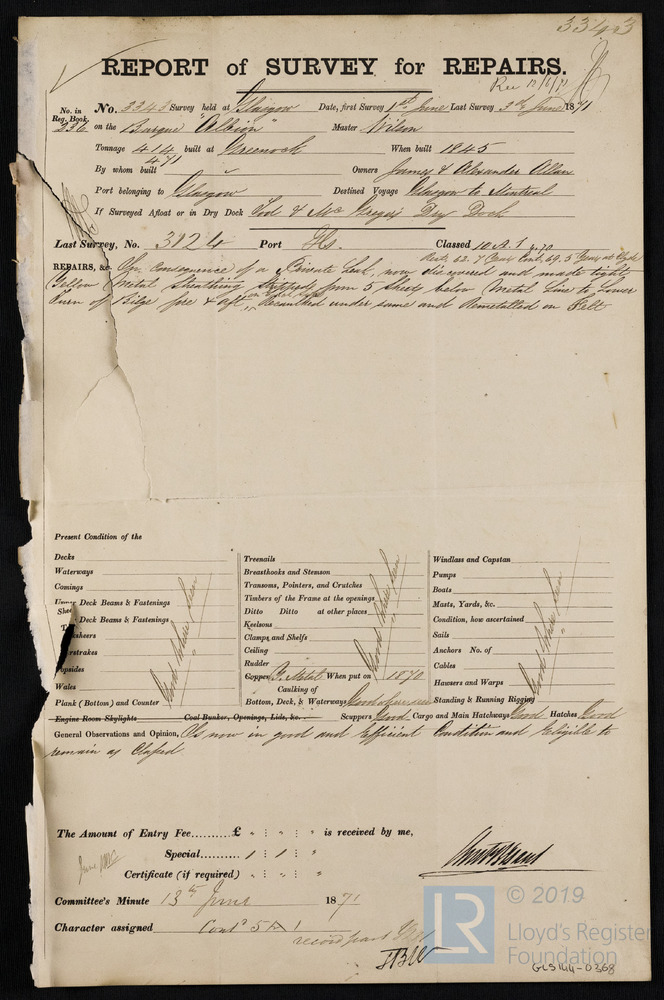 3343
REPORT of SURVEY for REPAIRS.
Rec 13/6/71
No. in Reg. Book.
No. 3343 Survey held at Glasgow Date, first Survey 1st June Last Survey 3th June 1871
236 on the Barque "Albion" Master Wilson
Tonnage 414 built at Greenock When built 1845
471
By whom built Owners James & Alexander Allan
Port belonging to Glasgow Destined Voyage Glasgow to Montreal
If Surveyed Afloat or in Dry Dock Tod & McGregor's Dry Dock
Last Survey, No. 3124 Port Classed 10 A.1 4.70
REPAIRS, &c. In consequence of a Private Leak, now discovered and made tight
Yellow Metal Sheathing Stripped from 5 Sheets below Metal Line to Lower
Turn of Bilge fore & aft, Recaulked under same and Remetalled on Felt
Present Condition of the
Decks
Waterways
Comings
Upper Deck Beams & Fastenings
Deck Beams & Fastenings
Topsides
Wales
Plank (Bottom) and Counter
Good where seen
Engine Room Skylights Coal Bunker, Openings, Lids, &c.
Treenails
Breasthooks and Stemson
Transoms, Pointers, and Crutches
Timbers of the Frame at the openings
Ditto Ditto at other places
Keelsons
Clamps and Shelfs
Ceiling
Rudder
Good where seen
Copper Y. Metal When put on 1870
Caulking of
Bottom, Deck, & Waterways Good where seen
Windlass and Capstan
Pumps
Boats
Masts, Yards, &c.
Condition, how ascertained
Sails
Anchors No. of
Cables
Hawsers and Warps
Standing & Running Rigging
Good where seen
Scuppers Good Cargo and Main Hatchways Good Hatches Good
General Observations and Opinion, Is now in good and Efficient Condition and Eligible to
remain as Classed
The Amount of Entry Fee..........£ " : " : " is received by me,
Special.......... 1 : 1 : "
Certificate (if required) " : " : "
Committee's Minute 13th June 1871
Character assigned Contd 5 A 1
© 2019
LR
Lloyd's Register
Foundation
GLS144-0368